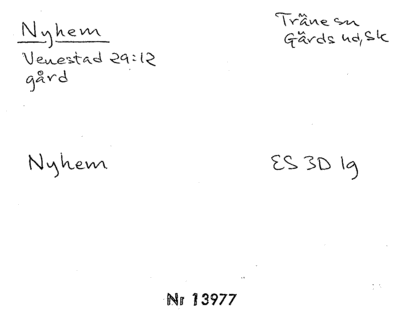 Nyhem
Träne sn
Venestad 29:12
Gärds hd, Sk
gård
Nyhem
ES 3D 1g
Nr 13977